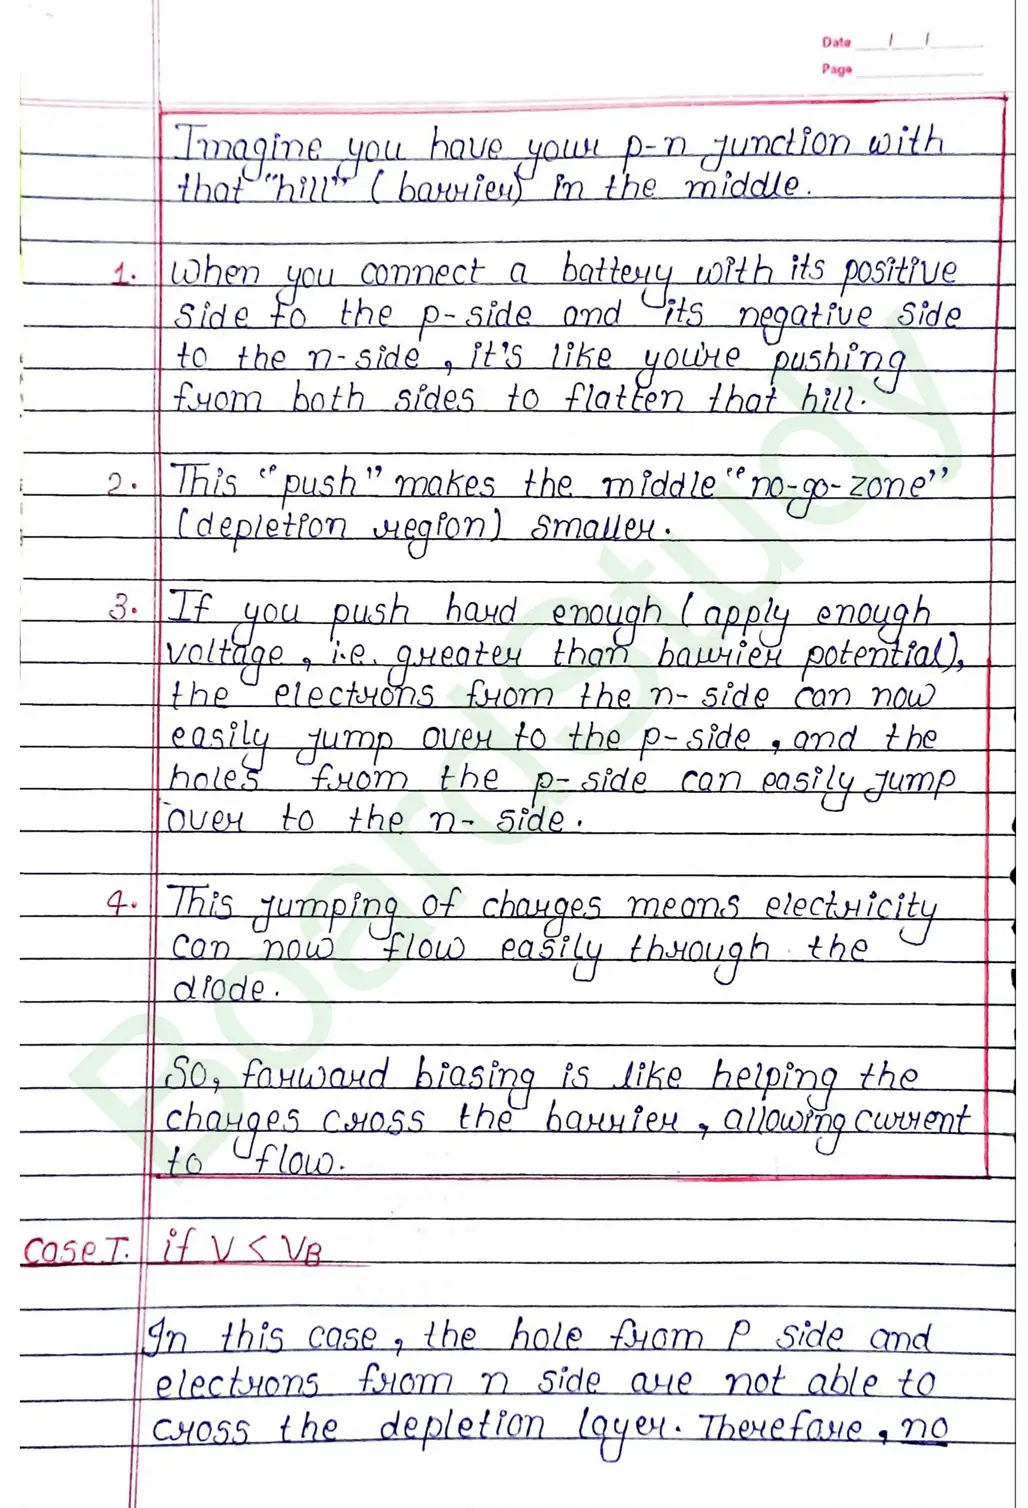 Date / /
Page
Imagine you have your p-n junction with
that "hill" (barrier) in the middle.
1. When you connect a battery with its positive
side to the p-side and its negative side
to the n-side, it's like you're pushing
from both sides to flatten that hill.
2. This "push" makes the middle "no-go-zone"
(depletion region) smaller.
3. If you push hard enough (apply enough
voltage, i.e. greater than barrier potential),
the electrons from the n-side can now
easily jump over to the p-side, and the
holes from the p-side can easily jump
over to the n-side.
4. This jumping of charges means electricity
can now flow easily through the
diode.
So, forward biasing is like helping the
charges cross the barrier, allowing current
to flow.
Case I. if V < VB
In this case, the hole from P side and
electrons from n side are not able to
cross the depletion layer. Therefore, no
BoardStudy